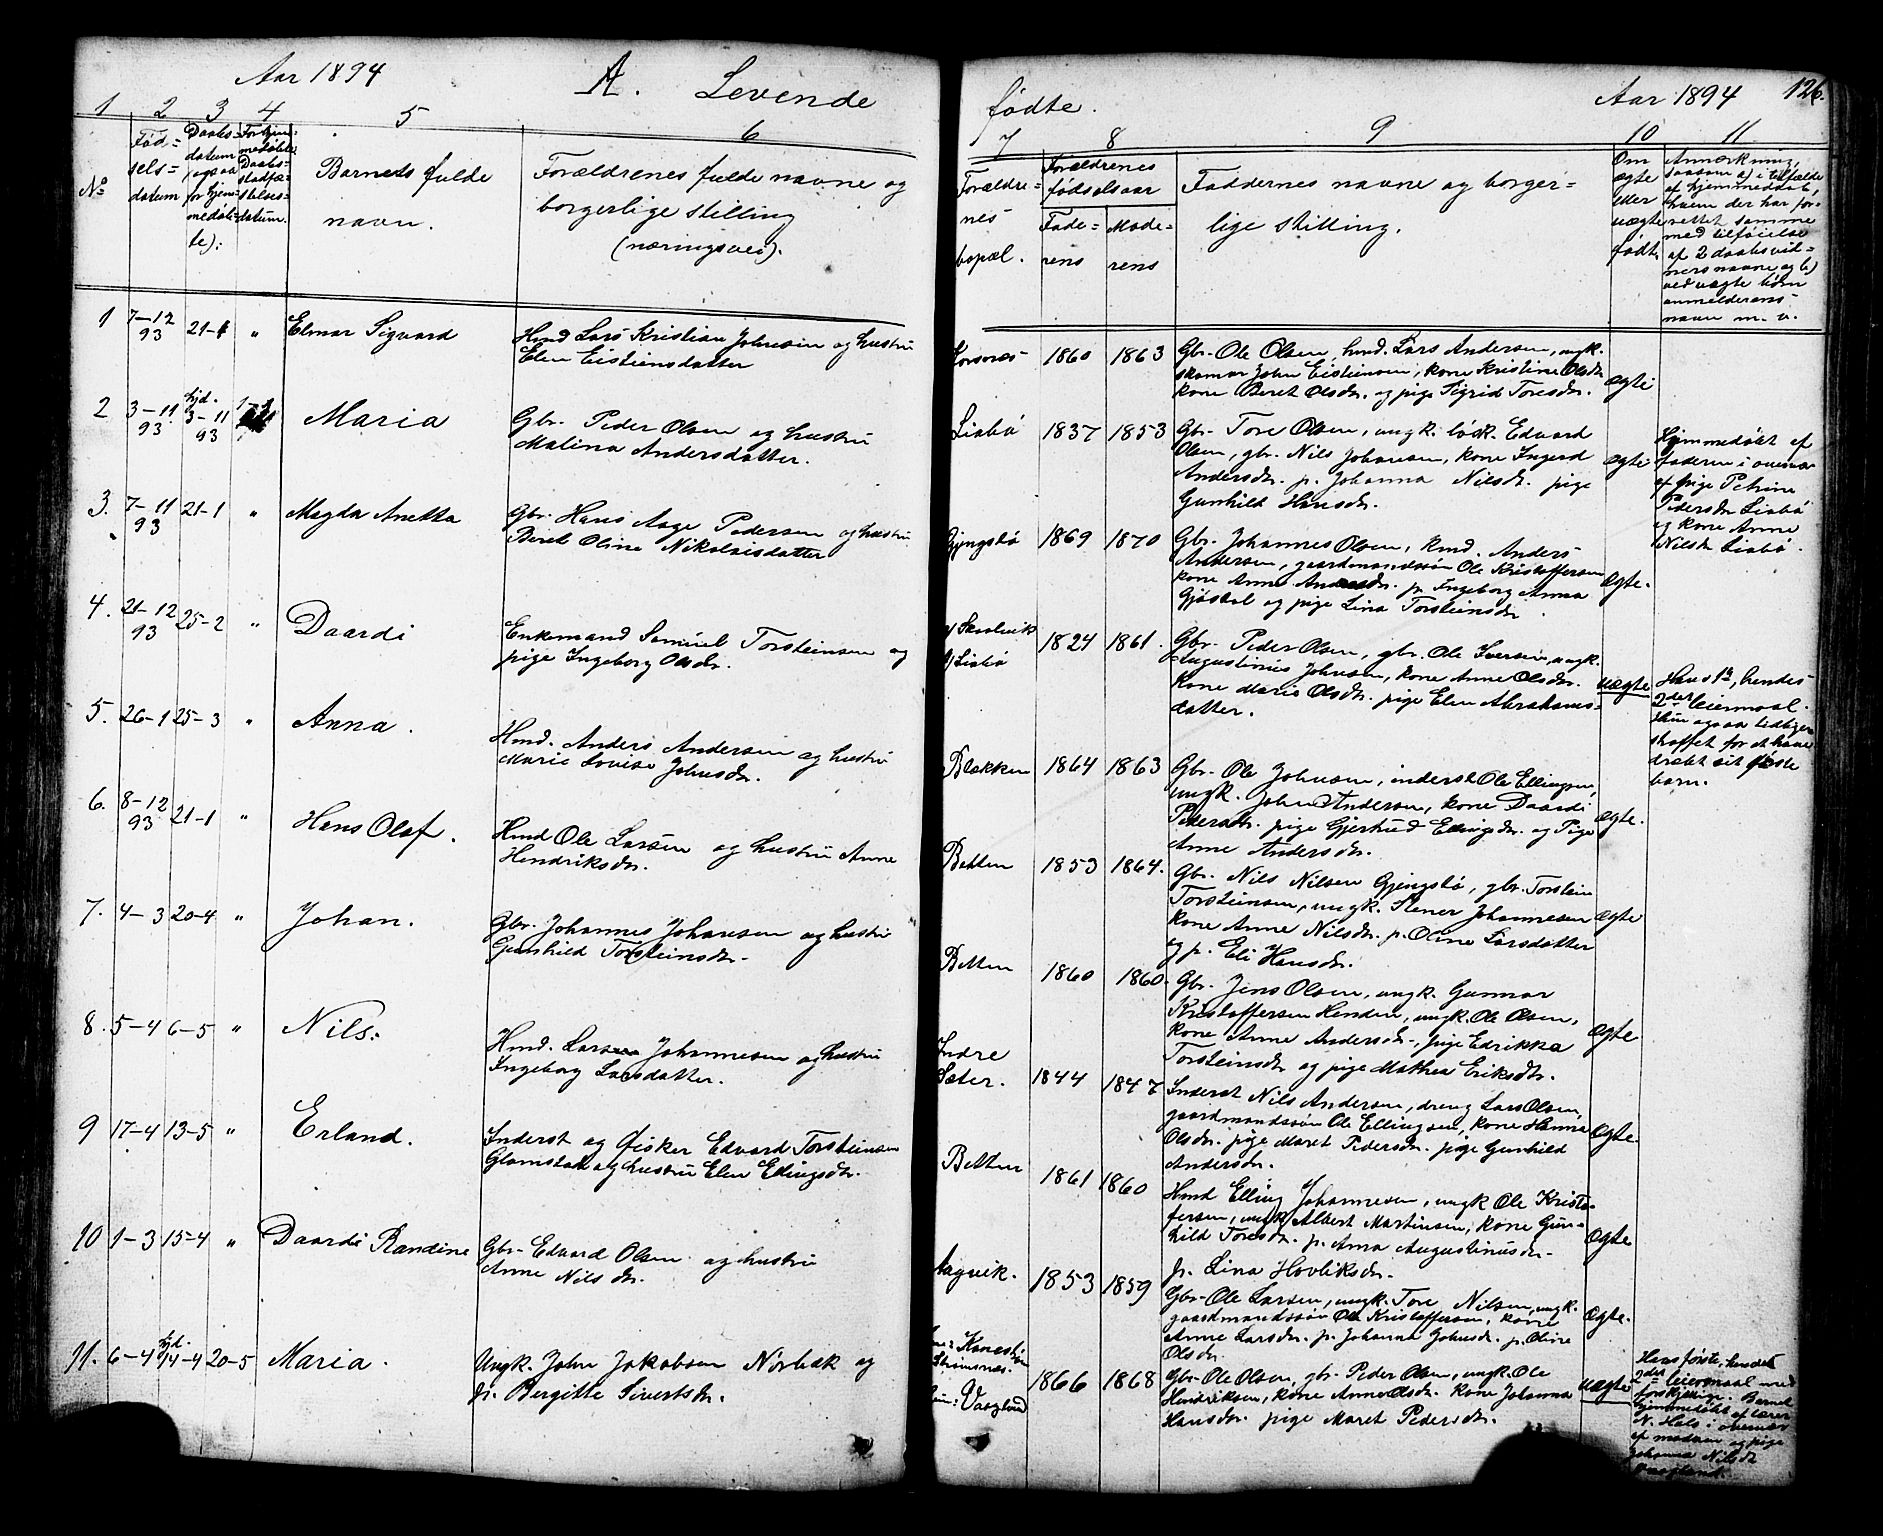 Aar 1894 A. Levende
1 2 3 4 5 6
№
Fød=
sels=
datum
Daabs=
datum
(ogsaa
for hjem=
medøb=
te).
For hjem=
medøbte
Daabs=
stadfæ=
stelses=
datum.
Barnets fulde
navn.
Forældrenes fulde navne og
borgerlige stilling
(næringsvei).
1 7-12 93 21-1 " Elmar Sigvard
Hmd Lars Kristian Johnsen og hustru
Elen Eistensdatter
2 3-11 93 hjd. 3-11 93 Maria
Gbr. Peder Olsen og hustru
Malina Andersdatter.
3. 7-11 93 21-1 " Magda Anetta
Gbr. Hans Aage Pedersen og hustru
Beret Oline Nikolaisdatter
4. 21-12 93 25-2 " Daardi
Enkemand Samuel Torsteinsen og
pige Ingeborg Olsdr.
5. 26-1 25-3 " Anna.
Hmd. Anders Andersen og hustru
Marie Lovise Johnsdr.
6. 8-12 93 21-1 " Hans Olaf.
Hmd Ole Larsen og hustru Anne
Hendriksdr.
7. 4-3 20-4 " Johan.
Gbr. Johannes Johansen og hustru
Gunhild Torsteinsdr-
8. 5-4 6-5 " Nils.
Hmd. Lars Johannesen og hustru
Ingeborg Larsdatter.
9 17-4 13-5 " Erland.
Inderst og fisker Edvard Torsteinsen
Glamstad og hustru Elen Ellingsdr.
10 1-3 15-4 " Daardi Randine
Gbr- Edvard Olsen og hustru
Anne Nilsdr.
11. 6-4 hjd. 14-4 20-5 Maria.
Ungk. John Jakobsen Norbak og
p. Bergitte Sivertsdr.
fødte. Aar 1894 126.
7 8 9 10 11
Forældre=
nes
bopæl.
Forældrenes
fødselsaar
Fade=
rens
Mode=
rens
Faddernes navne og borger=
lige stilling.
Om
ægte
eller
uægte
født.
Anmærkning,
saasom a) i tilfælde
af hjemmedaab,
hvem der har for=
rettet samme
med tilføielse
af 2 daabsvid=
ners navne og b)
ved uægte børn
anmelderens
navn m. v.
Korsnes 1860 1863
Gbr- Ole Olsen, hmd. Lars Andersen, ungk.
John Eistensen, kone Kristine Olsdr
kone Beret Olsdr. og pige Sigrid Toresdr.
ægte
Liabø 1837 1853
Gbr- Tore Olsen, ungk. løsk. Edvard
Olsen, gbr. Nils Johansen, kone Ingerd
Andersdr. p. Johanna Nilsdr. pige
Gunhild Hansdr.
ægte
Hjemmedøbt af
faderen i overvær
af pige Petrine
Pedersdr Liabø
og kone Anne
Nilsdr Liabø.
Gjengstø 1869 1870
Gbr. Johannes Olsen, hmd. Anders
Andersen, gaardmandssøn Ole Kristoffersen
kone Anne Andersdr. p. Ingeborg Anna
Gjøstøl og pige Lina Torsteinsdr
ægte.
Skaalvik
Liabø
1824 1861.
Gbr- Peder Olsen, gbr. Ole Iversen, ungk.
Augustinus Johnsen, kone Anne Olsdr.
kone Marie Olsdr. pige Elen Abrahams=
datter.
uægte
Hans 1ste, hendes
2det leiermaal.
Hun ogsaa
straffet for at have
dræbt sit første
barn.
Blækken 1864 1863
Gbr- Ole Johnsen, inderst Ole Ellingsen,
ungk. John Andersen, kone Daardi
Pedersdr. pige Gjertrud Ellingsdr. og Pige
Anne Andersdr.
ægte.
Betten 1853 1864.
Gbr. Nils Nilsen Gjengstø, gbr. Torstein
Torsteinsen, ungk. Stener Johannesen
kone Anne Nilsdr. p. Oline Larsdatter
og p. Eli Hansdr.
ægte
Betten 1860 1860.
Gbr. Jens Olsen, ungk. Gunnar
Kristoffersen Henden, ungk. Ole Olsen,
kone Anne Andersdr-, pige Edrikka
Torsteinsdr og pige Mathea Eriksdtr.
ægte
Indre
Sæter. 1844 1847
Inderst Nils Andersen, dreng Lars Olsen,
gaardmandssøn Ole Ellingsen, kone Hanna
Olsdr. pige Maret Pedersdr. pige Gunhild
Andersdr.
ægte.
Betten 1861 1860
Hmd Elling Johannesen, ungk Ole Kristo=
fersen, ungk Albert Martinsen, kone Gun=
hild Toresdr. p. Anna Augustinusdr-
p. Lina Hovliksdr-
ægte
Aagvik. 1853 1859
Gbr- Ole Larsen, ungk. Tore Nilsen, ungk.
gaardmandssøn Ole Kristoffersen, kone
Anne Larsdr. p. Johanna Johnsdr. p. Oline
Olsdr
ægte.
Vaagland 1866 1868
Gbr- Ole Olsen, gbr. Peder Olsen, ungk. Ole
Hendriksen, kone Anne Olsdr. kone Johanna
Hansdr. pige Maret Pedersdr.
uægte
Hans første, hendes
2det leiermaal med
forskjellige. Barnet
hjemmedøbt af lærer
N. Hals i overvær
af modren og pige
Johanna Nilsdr